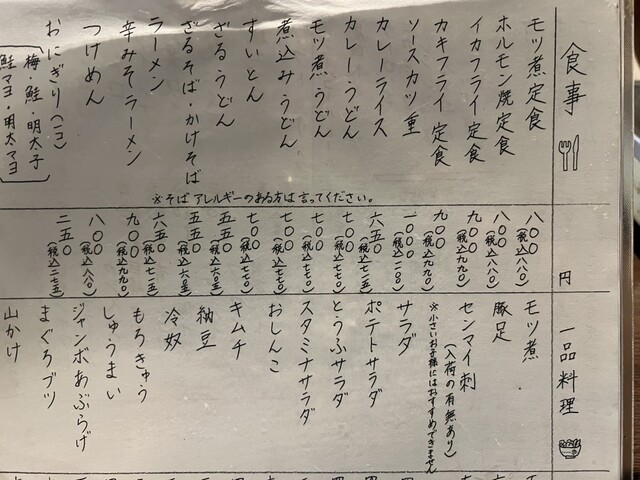 食事
モツ煮定食
ホルモン焼定食
イカフライ定食
カキフライ定食
ソースカツ重
カレーライス
カレーうどん
モツ煮うどん
煮込みうどん
すいとん
ざるうどん
ざるそば・かけそば
ラーメン
辛みそラーメン
つけめん
おにぎり(二コ)
梅・鮭・明太子
鮭マヨ・明太マヨ
※そばアレルギーのある方は言ってください。
円
八〇〇(税込八八〇)
八〇〇(税込八八〇)
九〇〇(税込九九〇)
九〇〇(税込九九〇)
一〇〇〇(税込一一〇〇)
六五〇(税込七一五)
七〇〇(税込七七〇)
七〇〇(税込七七〇)
七〇〇(税込七七〇)
七〇〇(税込七七〇)
五五〇(税込六〇五)
五五〇(税込六〇五)
六五〇(税込七一五)
九〇〇(税込九九〇)
八〇〇(税込八八〇)
二五〇(税込二七五)
一品料理
モツ煮
豚足
センマイ刺
(入荷の有無あり)
※小さいお子様にはおすすめできません
サラダ
ポテトサラダ
とうふサラダ
スタミナサラダ
おしんこ
キムチ
納豆
冷奴
もろきゅう
しゅうまい
ジャンボあぶらげ
まぐろブツ
山かけ